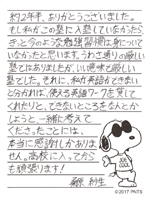 約2年半、ありがとうございました。
もし私がこの塾に入塾していなかったら
きっと今のような勉強習慣は身について
いなかったと思います。うわさ通りの厳しい
塾ではありましたが、いい意味で厳しい
塾でした。それに、私が英語ができない
と分かれば、使える英語ワークを貸して
くれたりと、できないところをなんとか
しようと一緒に考えて
くださったことには、
本当に感謝しかありま
せん。高校に入ってから
も頑張ります！
JOE COOL
© 2017 PNTS